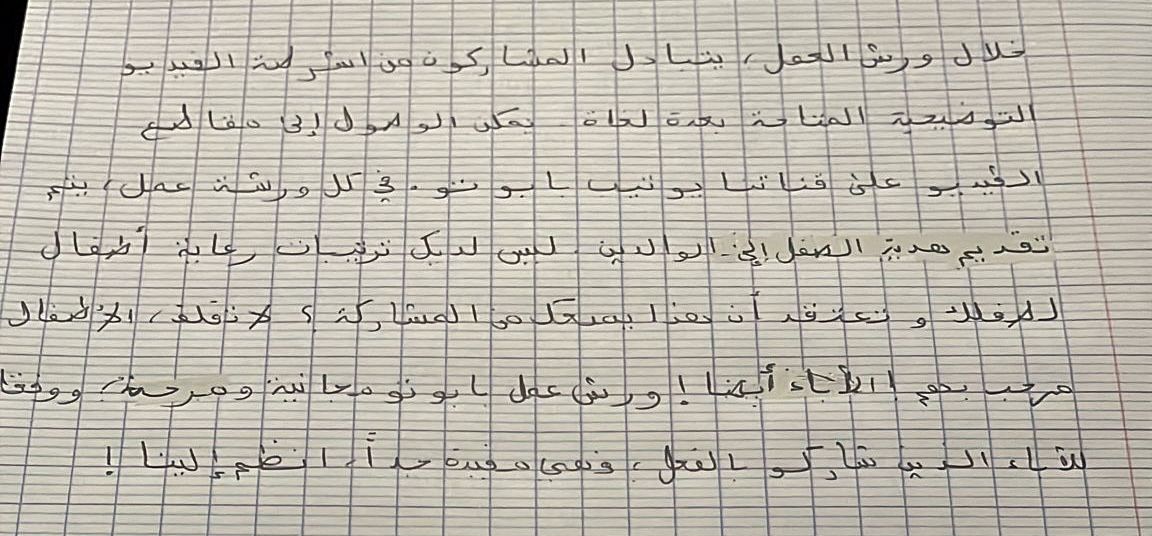 خلال ورش العمل، يتبادل المشاركون من اشرطة الفيديو
التوضيحية المتاحة بعدة لغاة. يمكن الوصول إلى مقاطع
الفيديو على قناتنا يوتيب بابوتنو. في كل ورشة عمل، يتم
تقديم هدية الطفل إلى الوالدين. ليس لديك ترتيبات رعاية أطفال
لطفلك و تعتقد أن هذا يمنعك من المشاركة؟ لا تقلق، الأطفال
مرحب بهم أيضا! ورش عمل بابوتنو مجانية ومرحة، ووفقا
للآباء الذين شاركو بالفعل، فهي مفيدة جداً. انظم إلينا!